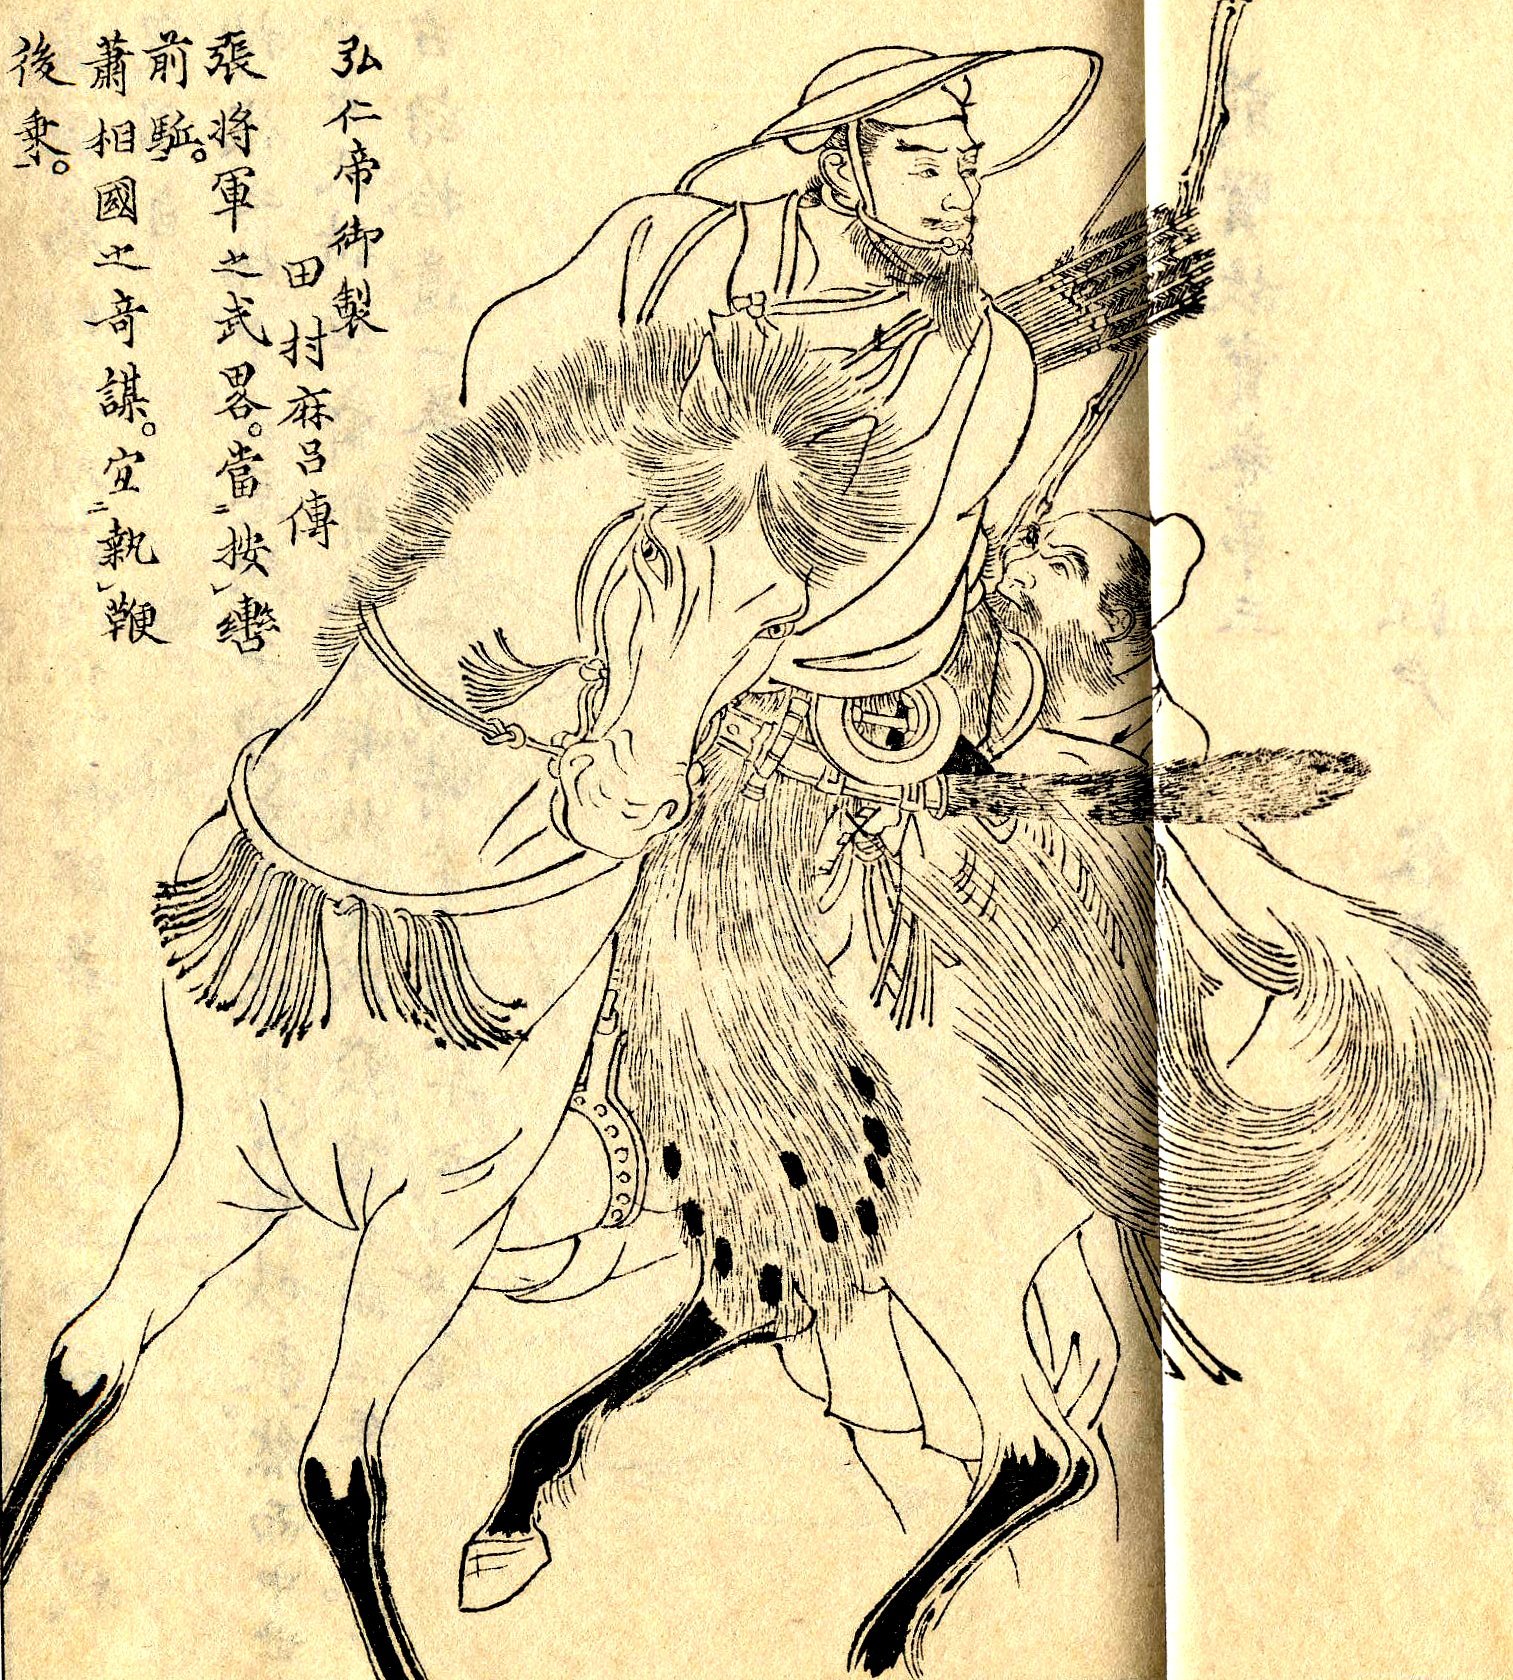 弘仁帝御製
田村麻呂傳
張将軍之武畧。當㆓按㆑轡
前駈㆒。
蕭相國之竒謀。宜㆓執㆑鞭
後乗㆒。